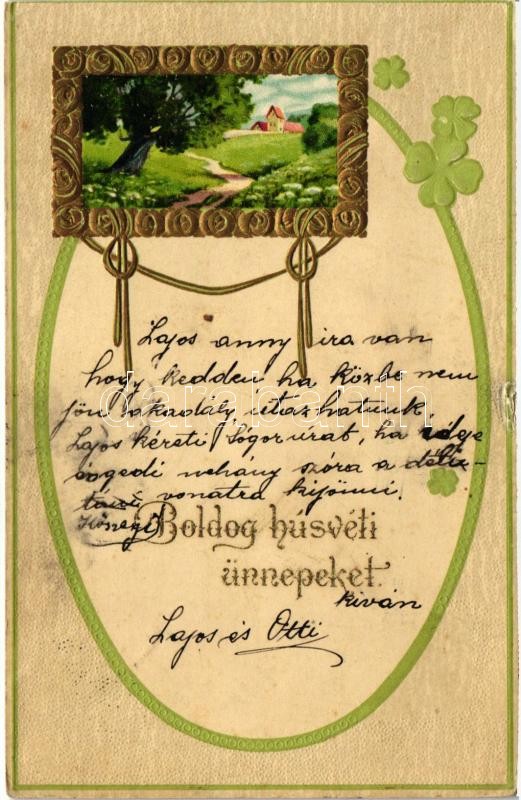 Lajos anny ira van
hogy kedden ha közbe nem
jön akadály, utazhatunk.
Lajos kéreti Sógor urat, ha ideje
engedi nehány szóra a déli
vonatra kijönni.
Boldog húsvéti
ünnepeket
kiván
Lajos és Otti
darabanth.com